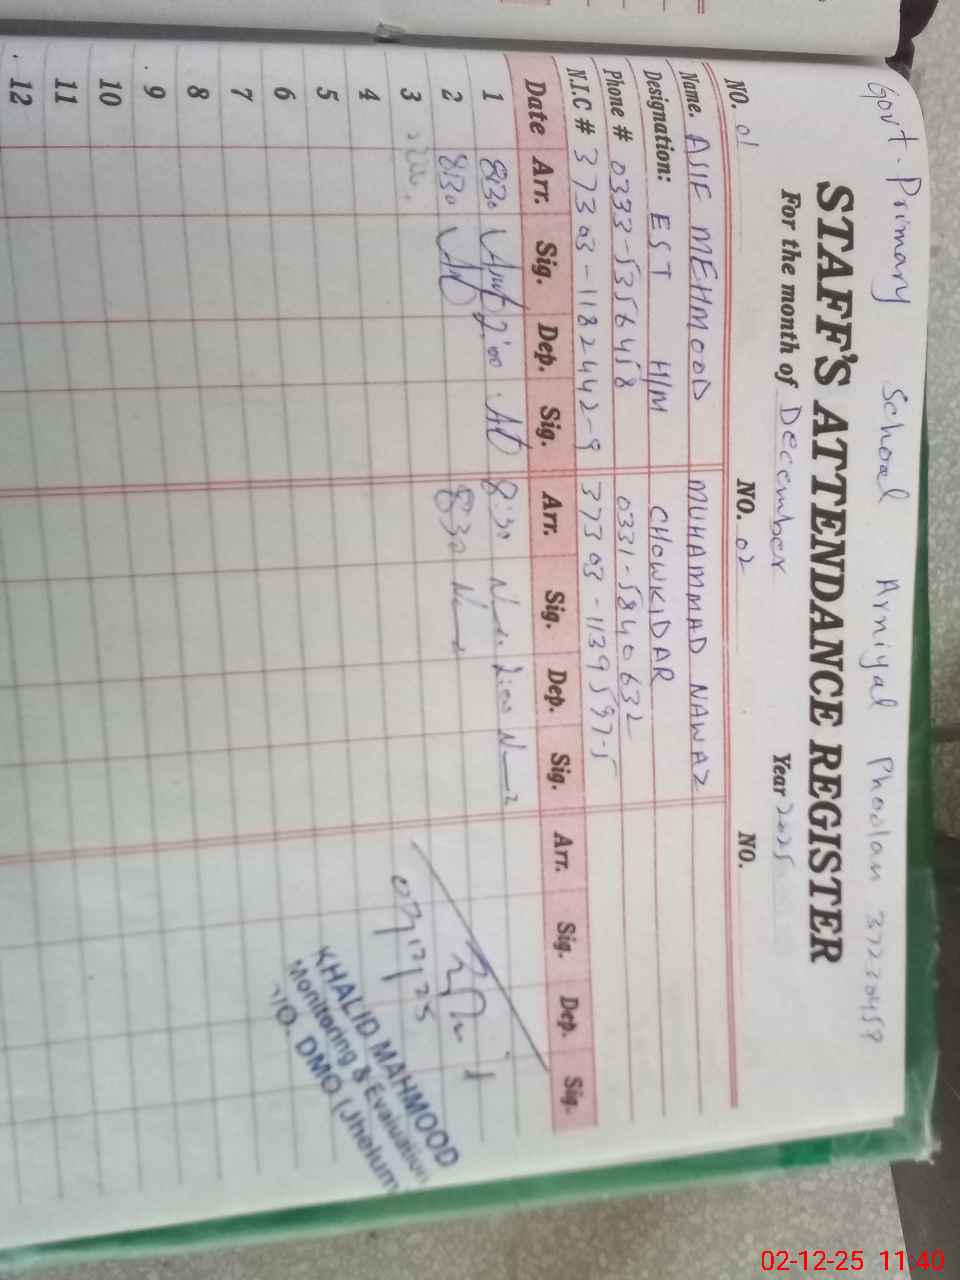 Govt. Primary School Arniyal Phoolan 37230458
STAFF'S ATTENDANCE REGISTER
For the month of December Year 2025
NO. 01 NO. 02 NO.
Name. ASIF MEHMOOD MUHAMMAD NAWAZ
Designation: EST H/M CHOWKIDAR
Phone # 0333-5356458 0331-5840632
N.I.C # 37303-1182442-9 37303-1139597-5
Date Arr. Sig. Dep. Sig. Arr. Sig. Dep. Sig. Arr. Sig. Dep. Sig.
1 8:30 2:00 8:30 2:00
2 8:30 8:30
3
4
5
6
7
8
9
10
11
12
02/12/25
KHALID MAHMOOD
Monitoring & Evaluation
DMO (Jhelum
02-12-25 11:40